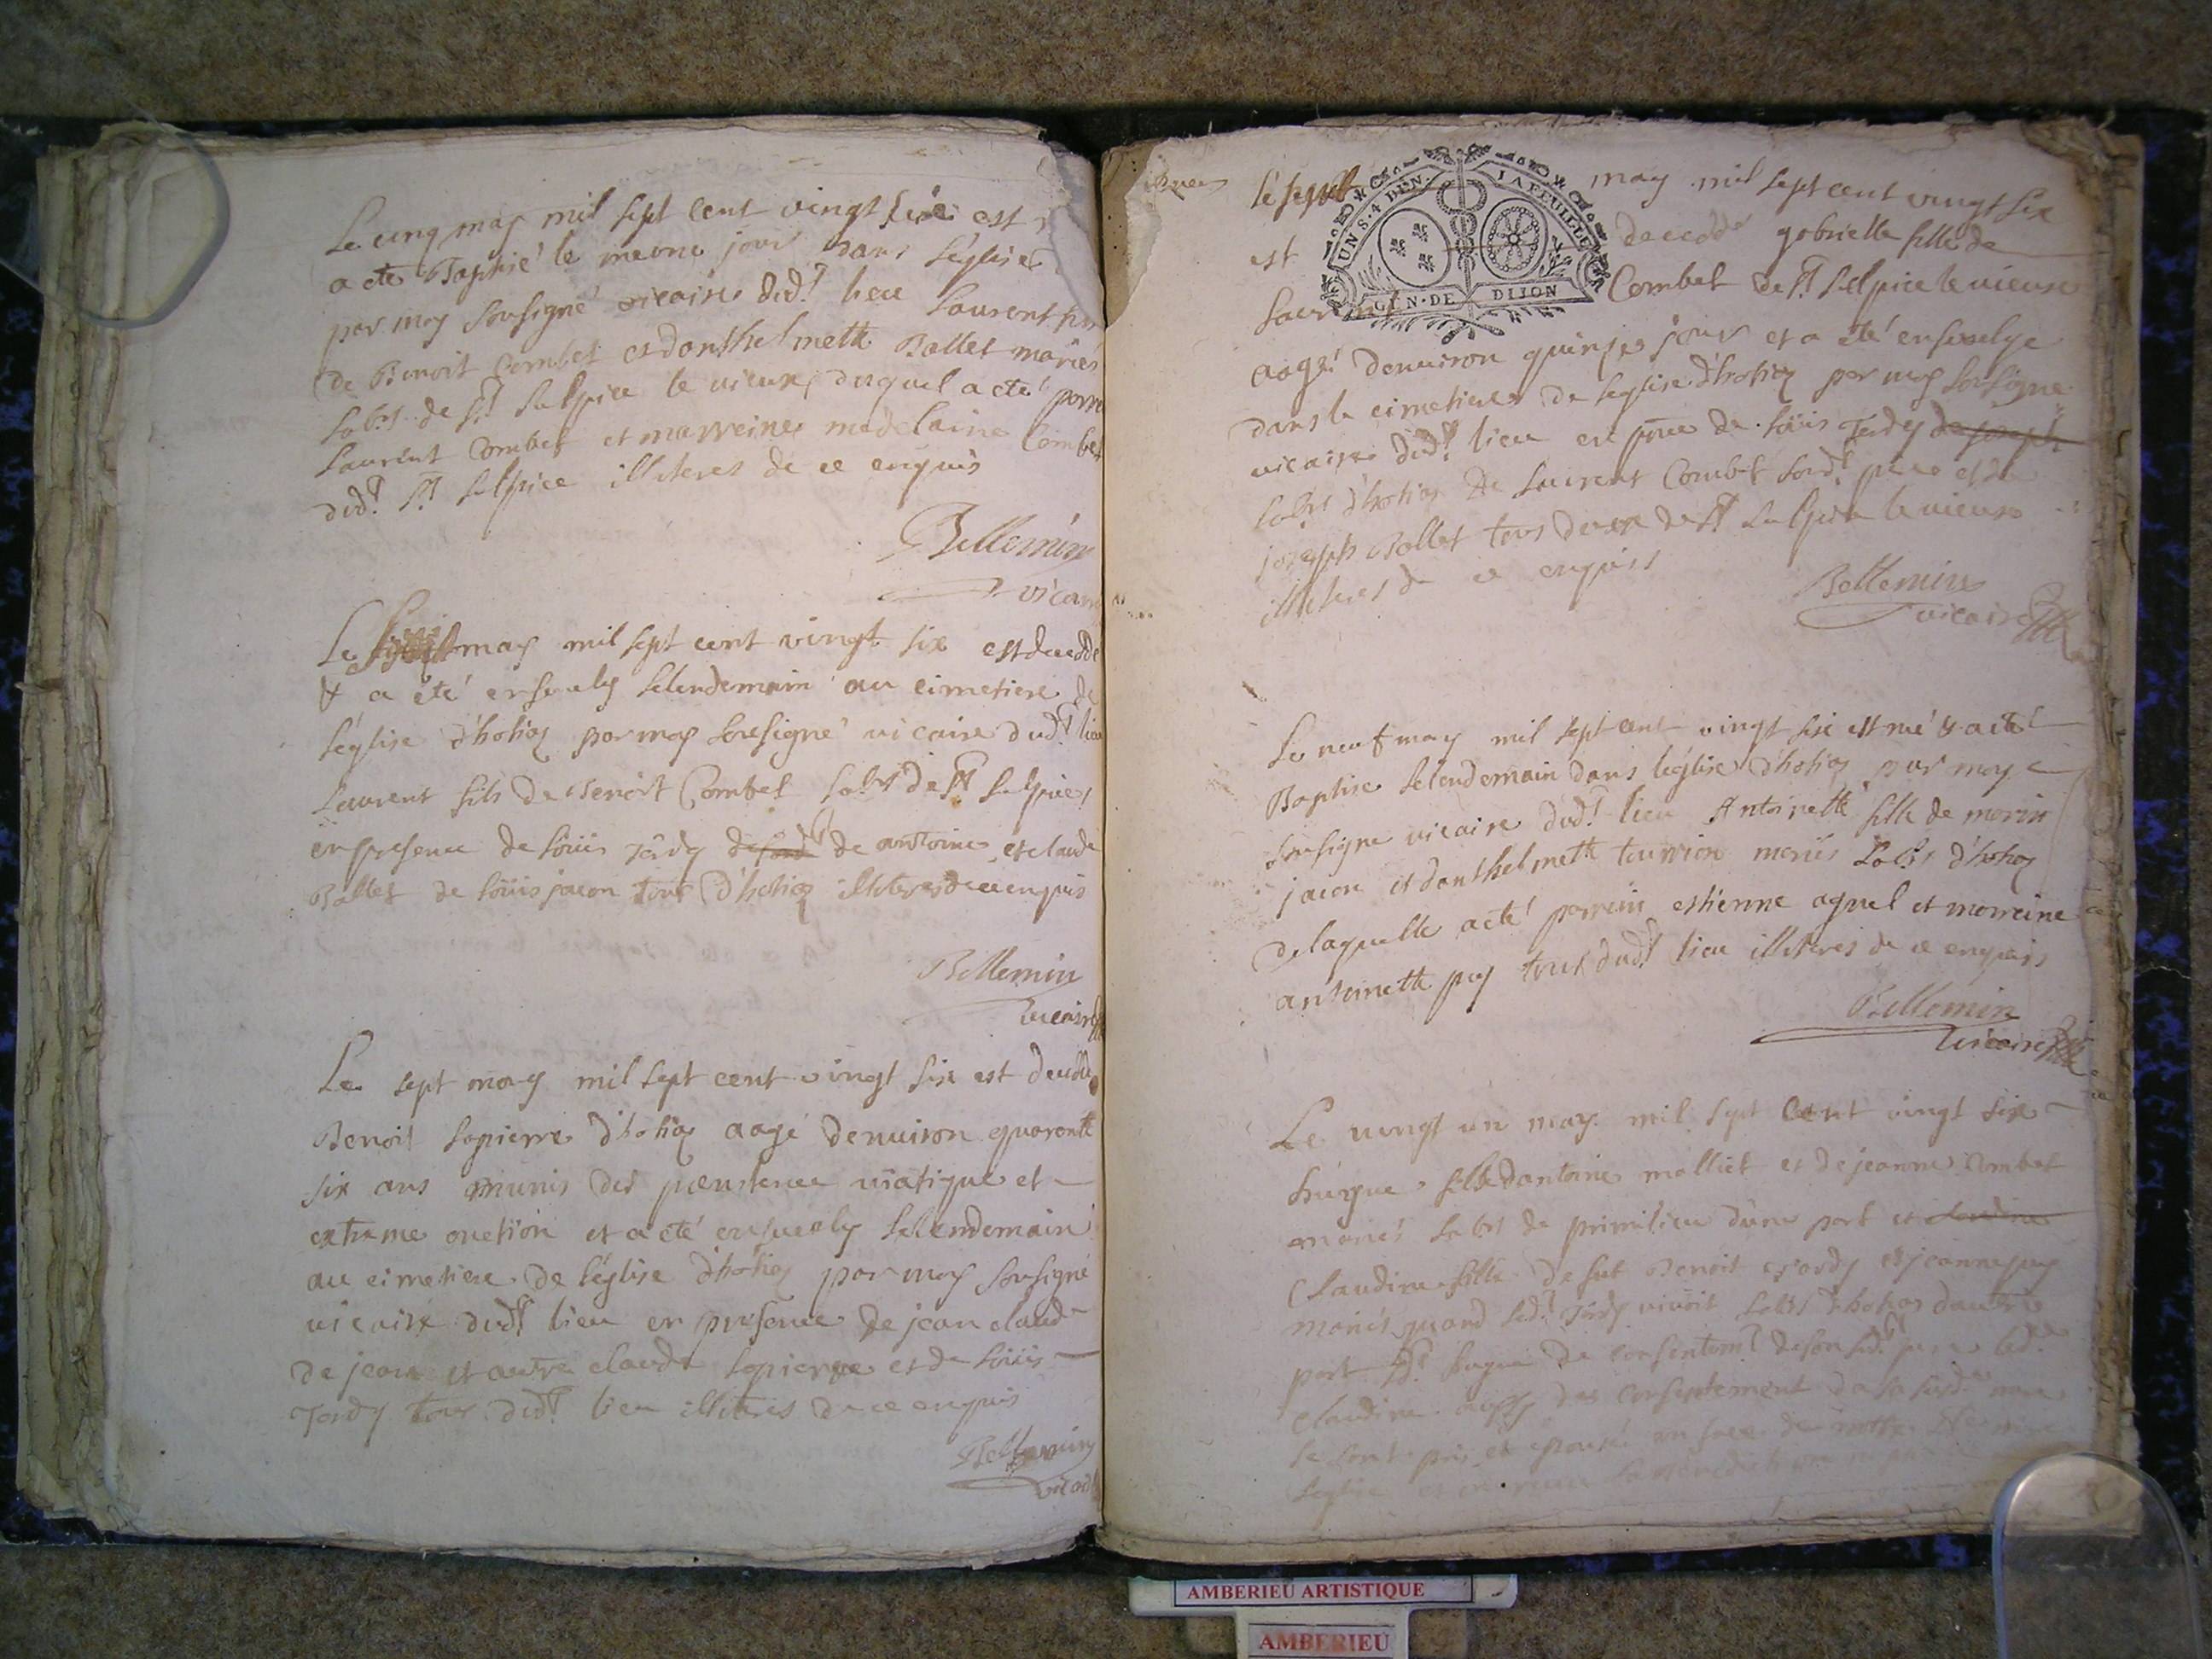 Le cinq may mil sept cent vingt six est
a eté Baptisé le mesme jour dans l'église
par moy sousigné vicaire dud.t lieu Laurent fils
de Benoit Combet et donthelmette Ballet mariés
lab.rs de s.t sulpice le vieux, duquel a eté parre
Laurent Combet et marreine madelaine Combet
dud.t s.t sulpice illiteres de ce enquis
Bellemin
vicaire
Le may mil sept cent vingt six est decedde
& a eté enseuely le lendemain au cimetiere de
l'église d'hotiaz par moy sousigné vicaire dud.t lieu
Laurent fils de Benoit Combet lab.rs de s.t sulpice,
en presence de Loüis Tardy de antoine et claude
Ballet de Loüis jacon tous d'hotiaz illiteres de ce enquis
Bellemin
vicaire
Le sept may mil sept cent vingt six est decedde
Benoit lapierre d'hotiaz aagé denuiron quarente
six ans munis des penitence viatique et
extreme onction et a eté enseuely le lendemain
au cimetiere de l'église d'hotiaz par moy sousigné
vicaire dud.t lieu en presence de jean claud
de jean et autre claude lapierre et de Loüis
Tardy tous dud.t lieu illiteres de ce enquis
Bellemin
vicaire
le sept may mil sept cent vingt six
UN S. 4 DEN. LA FEUILLE
GEN. DE DIJON
est decedde gabrielle fille de
Laurent Combet de s.t sulpice le vieux
aagé denuiron quinze jour et a eté enseuelye
dans le cimetiere de l'eglise d'hotiaz par moy sousigné
vicaire dud.t lieu en pnce de Loüis Tardy de joseph
lab.rs d'hotiaz de Laurent Combet sond.t pere et de
joseph Ballet tous deux de s.t sulpice le vieux
illiteres de ce enquis
Bellemin
vicaire
Le neuf may mil sept cent vingt six est né & a eté
Baptisé le lendemain dans l'église d'hotiaz par moy
sousigne vicaire dud.t lieu Antoinette fille de morin
jacon et donthelmette tournion mariés lab.rs d'hotiaz
de laquelle a eté parrein estienne aguel et marreine
antoinette puy tous dud.t lieu illiteres de ce enquis
Bellemin
vicaire
Le vingt un may mil sept cent vingt six
hugue fils dantoine molliet et de jeanne Combet
mariés lab.rs de primilieu d'une part et claudine
Claudine fille de fut Benoit Tardy et jeanne puy
mariés quand led.t Tardy vivoit lab.rs d'hotiaz dautre
part led.t hugue de consentem.t de son sud.t pere lad.te
Claudine aussy du consentement de sa sud.te mere
se sont pris et epousé en face de notre S.te mere
l'église et ont receu la benediction